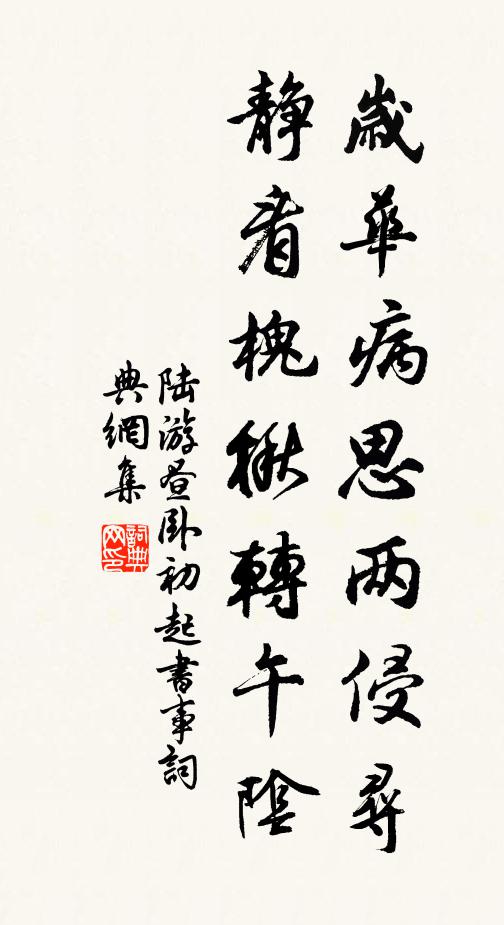 歲華病思两侵尋
静看槐楸轉午陰
陆游晝卧初起書事詞
典網集
詞典网印